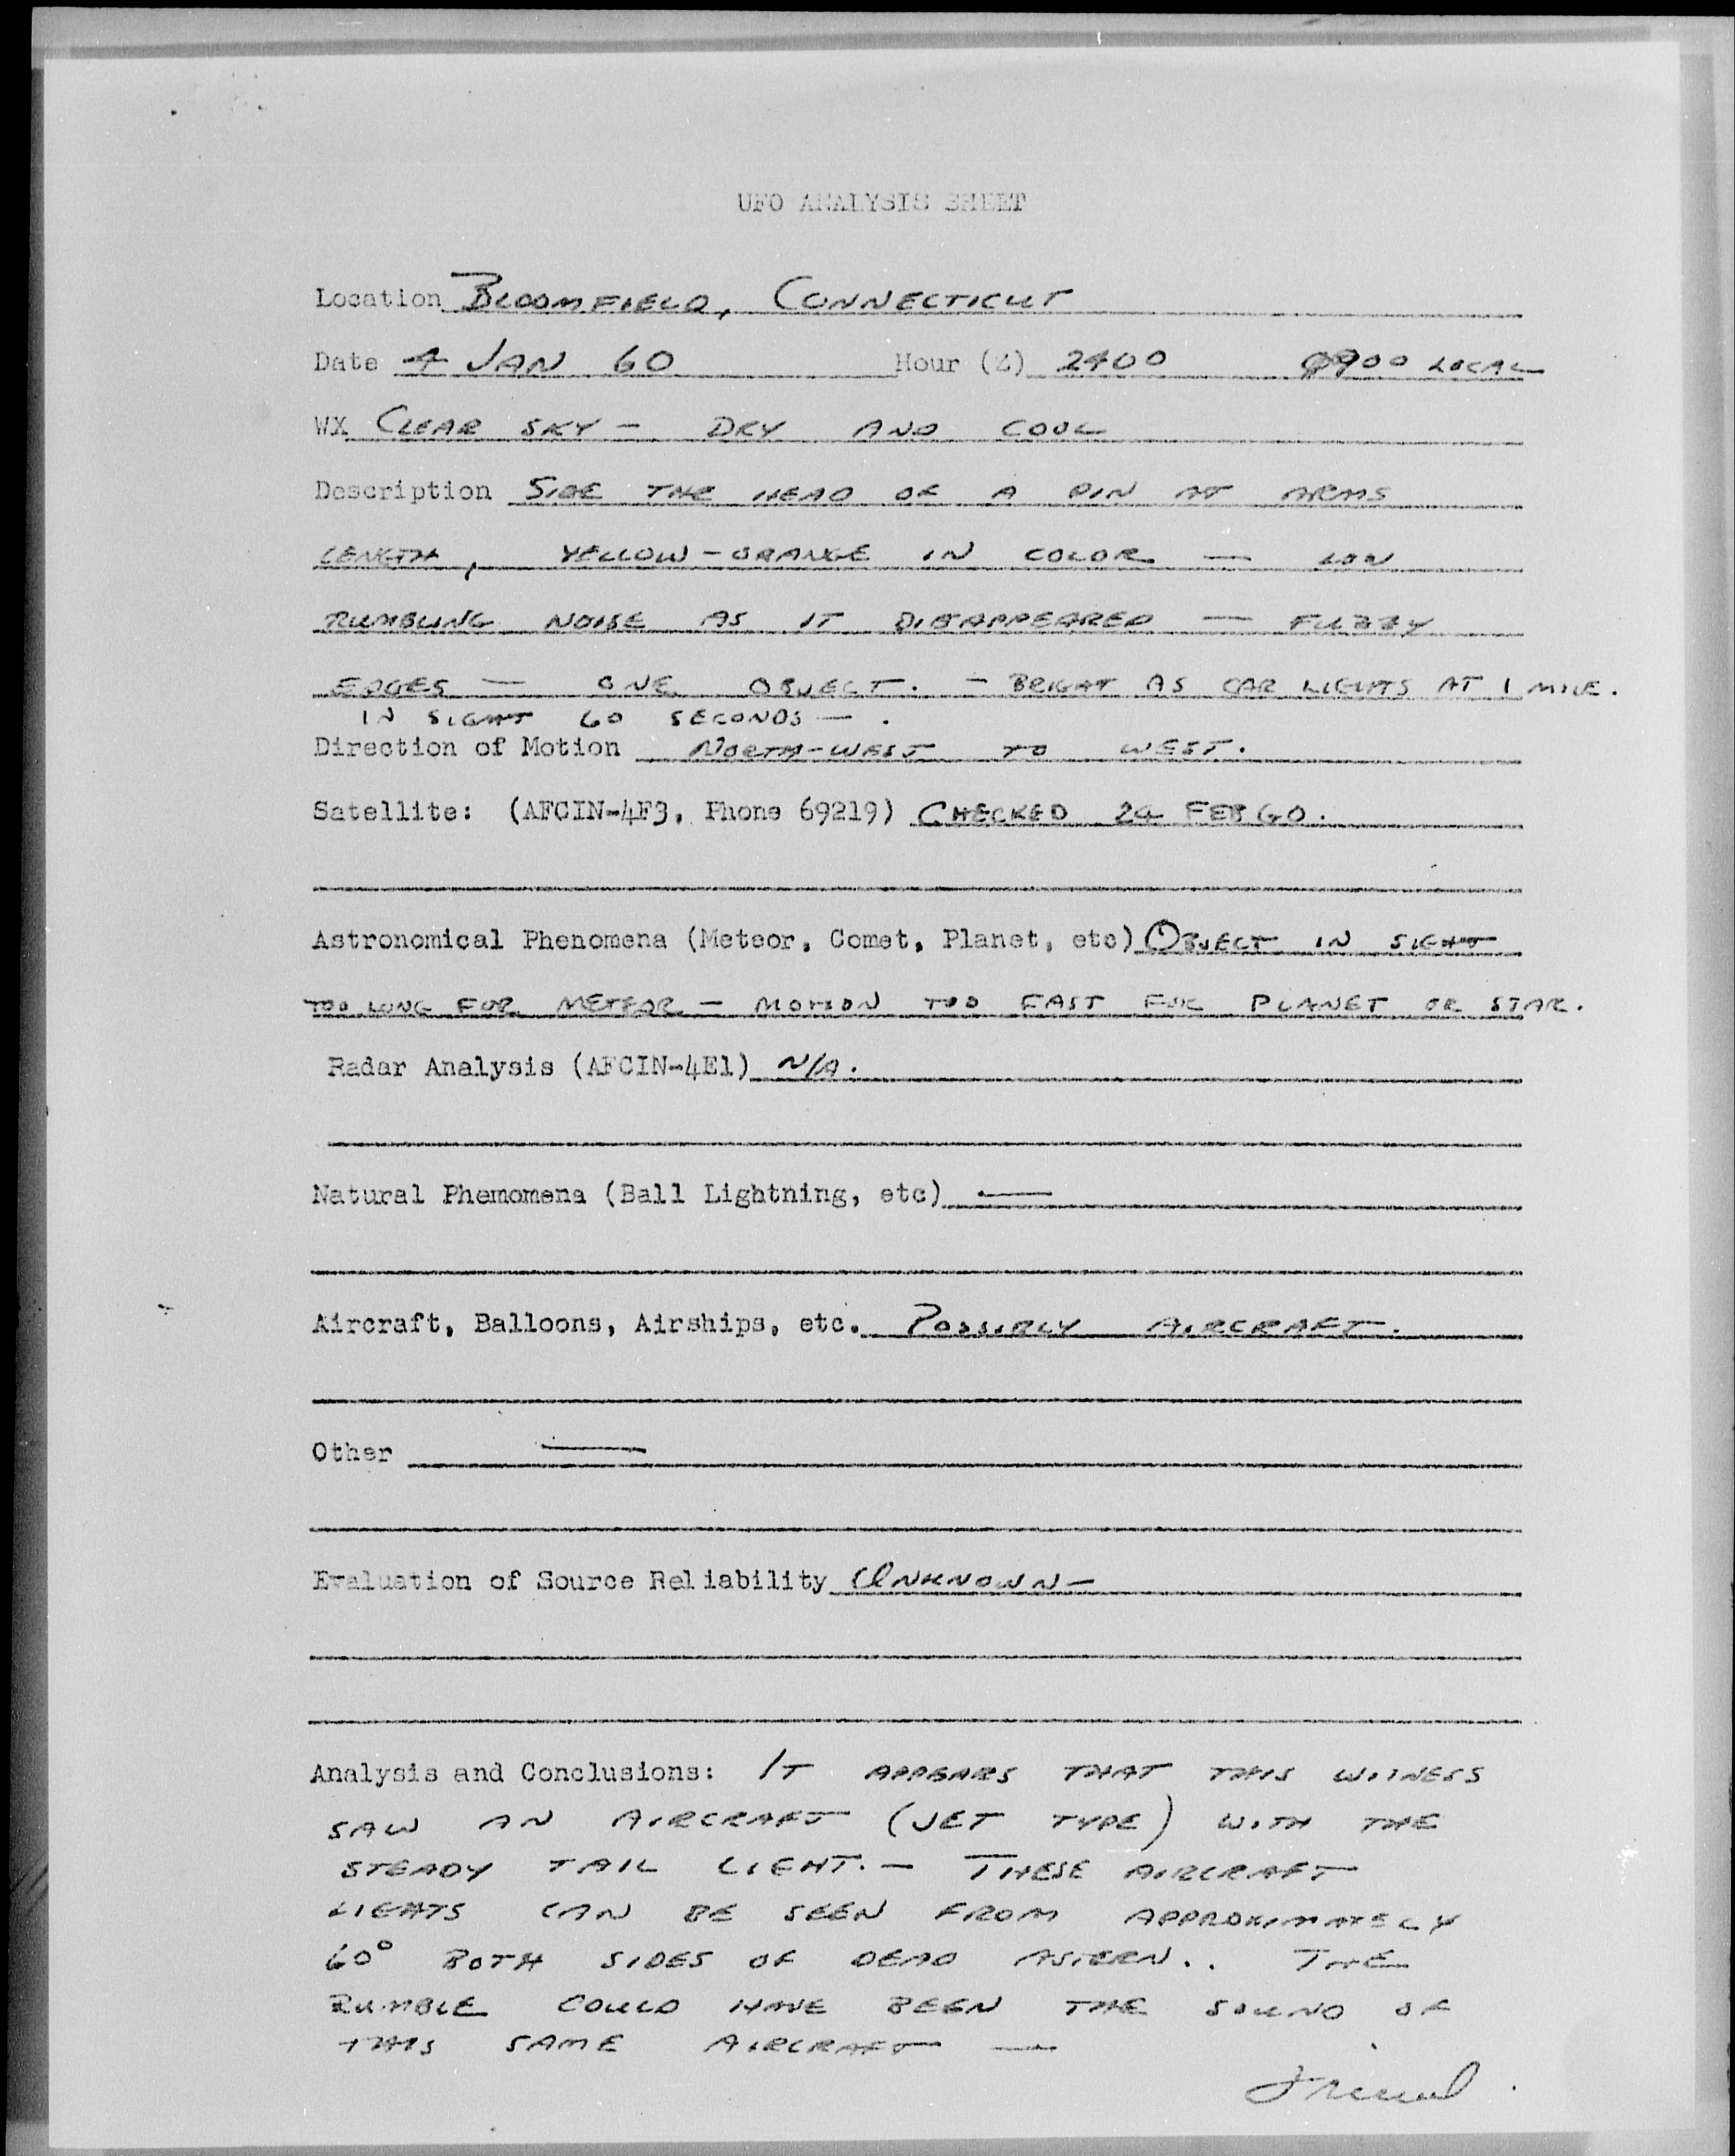 UFO ANALYSIS SHEET
Location BLOOMFIELD, CONNECTICUT
Date 4 JAN 60 Hour (Z) 2400 0900 LOCAL
WX CLEAR SKY - DRY AND COOL
Description SIZE THE HEAD OF A PIN AT ARMS
LENGTH, YELLOW-ORANGE IN COLOR — LOW
RUMBLING NOISE AS IT DISAPPEARED — FUZZY
EDGES — ONE OBJECT. - BRIGHT AS CAR LIGHTS AT 1 MILE.
IN SIGHT 60 SECONDS — .
Direction of Motion NORTH-WEST TO WEST.
Satellite: (AFCIN-4F3, Phone 69219) CHECKED 24 FEB 60.
Astronomical Phenomena (Meteor, Comet, Planet, etc) OBJECT IN SIGHT
TOO LONG FOR METEOR - MOTION TOO FAST FOR PLANET OR STAR.
Radar Analysis (AFCIN-4E1) N/A.
Natural Phemomena (Ball Lightning, etc) —
Aircraft, Balloons, Airships, etc. POSSIBLY AIRCRAFT.
Other —
Evaluation of Source Reliability UNKNOWN -
Analysis and Conclusions: IT APPEARS THAT THIS WITNESS
SAW AN AIRCRAFT (JET TYPE) WITH THE
STEADY TAIL LIGHT. - THESE AIRCRAFT
LIGHTS CAN BE SEEN FROM APPROXIMATELY
60° BOTH SIDES OF DEAD ASTERN.. THE
RUMBLE COULD HAVE BEEN THE SOUND OF
THIS SAME AIRCRAFT —